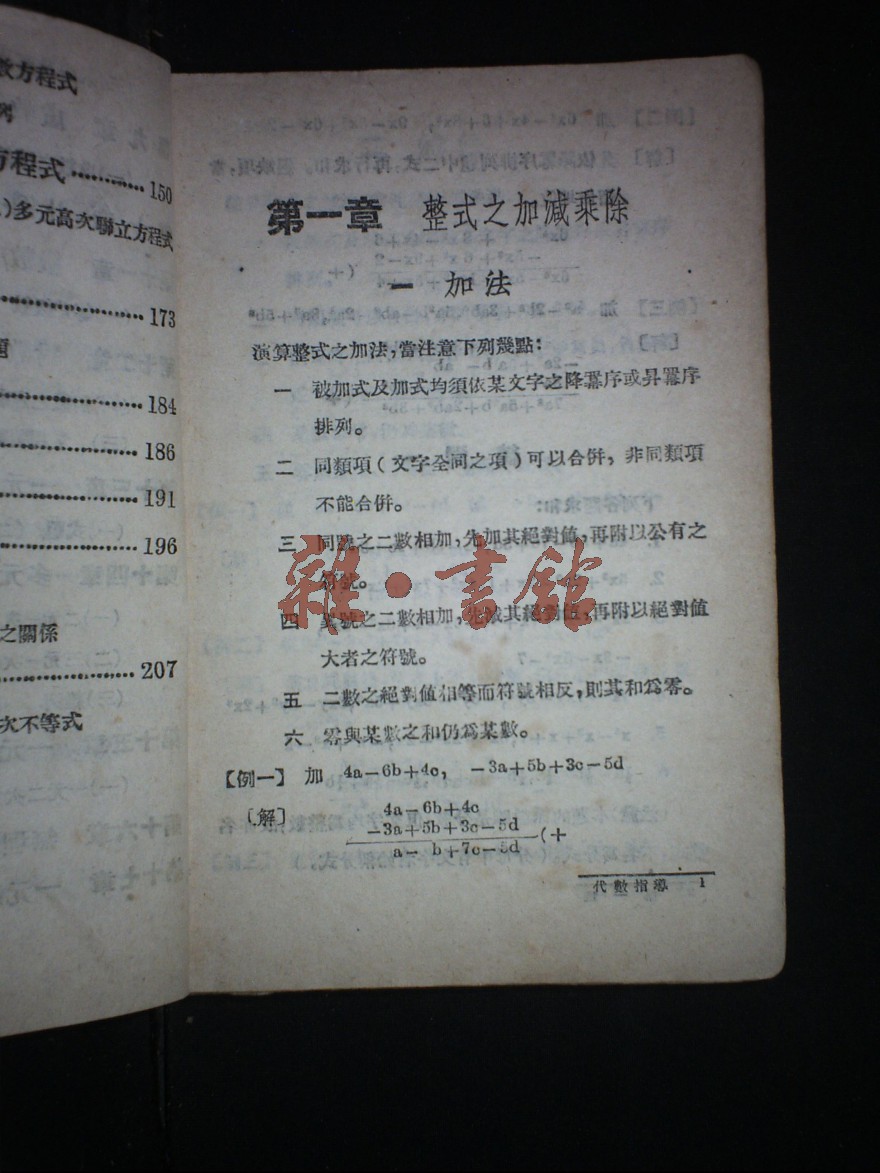 數方程式
列
方程式 ············ 150
.)多元高次聯立方程式
··················· 173
題
··················· 184
··················· 186
··················· 191
··················· 196
之關係
··················· 207
次不等式
第一章 整式之加減乘除
一 加法
演算整式之加法,當注意下列幾點:
一 被加式及加式均須依某文字之降冪序或昇冪序
排列。
二 同類項(文字全同之項)可以合併,非同類項
不能合併。
三 同號之二數相加,先加其絕對值,再附以公有之
符號。
四 異號之二數相加,先減其絕對值,再附以絕對值
大者之符號。
五 二數之絕對值相等而符號相反,則其和爲零。
六 零與某數之和仍爲某數。
【例一】 加 4a-6b+4c, -3a+5b+3c-5d
〔解〕 4a-6b+4c
-3a+5b+3c-5d(+
a- b+7c-5d
代數指導 1
雜·書館